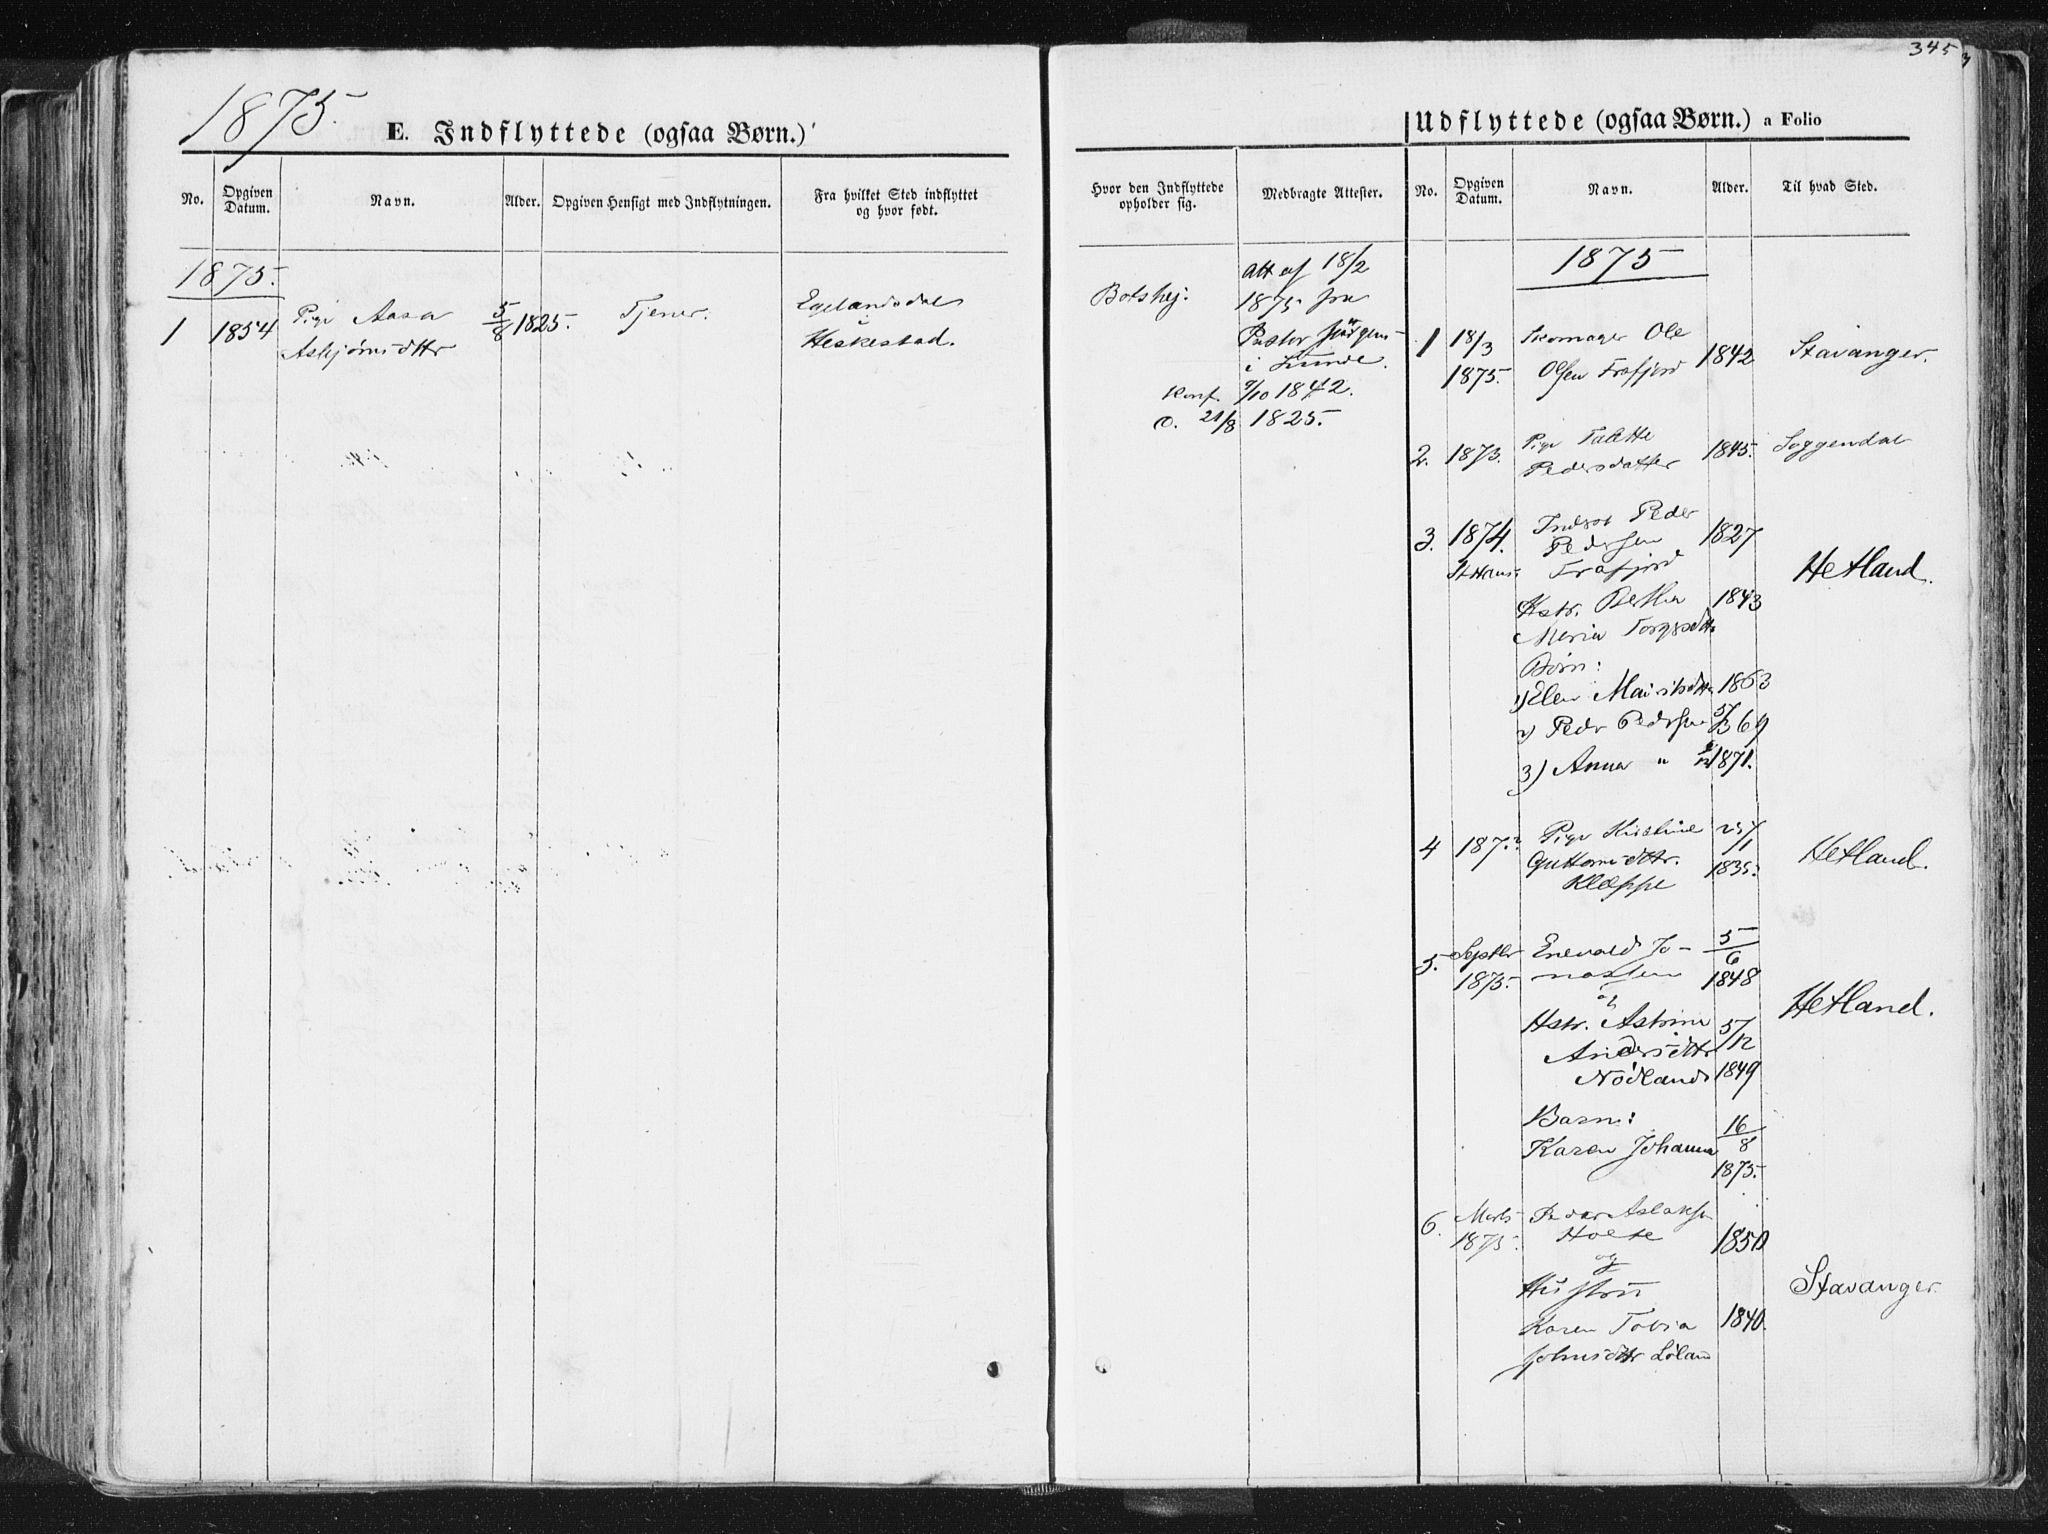 345
1875.
E. Indflyttede (ogsaa Børn.)
Udflyttede (ogsaa Børn.) a Folio
No.
Opgiven Datum.
Navn.
Alder.
Opgiven Hensigt med Indflytningen.
Fra hvilket Sted indflyttet
og hvor født.
Hvor den Indflyttede
opholder sig.
Medbragte Attester.
No.
Opgiven Datum.
Navn.
Alder.
Til hvad Sted.
1875.
1 1854 Pige Aasa 5/8 1825. Tjener. Egelandsdal
Asbjørnsdttr Heskestad.
att af 18/2
1875 fra
Pastor
i Lunde.
Konf. 9/10 1842.
1825.
1875
1 18/3 Skomager Ole 1842 Stavanger.
1875. Olsen Frafjord
2. 1873. Pige Talette 1845. Soggendal
Pedersdatter
3. 1874. Peder 1827
Pedersen
St Hans Frafjord Hetland.
Hstr. Bertha 1843
Maria
Børn:
1) Elen 1863
2) Peder Pedersen 69
3) Anna " 1871.
4 187 Pige Kristine Hetland.
Guttormsdttr. 1835.
Klæppe
5. Septbr Enevald Jo- 5/6
1875. nassen 1848
og Hetland.
Hstr. Astrine 5/12
Andersdttr
Nødland 1849
Barn: 16/8
Karen Johanna
1875.
6. Marts Peder Aslaksen
1875. Holte 1850
og
Hustru Stavanger
Karen Tobia 1840.
Johnsdttr Løland